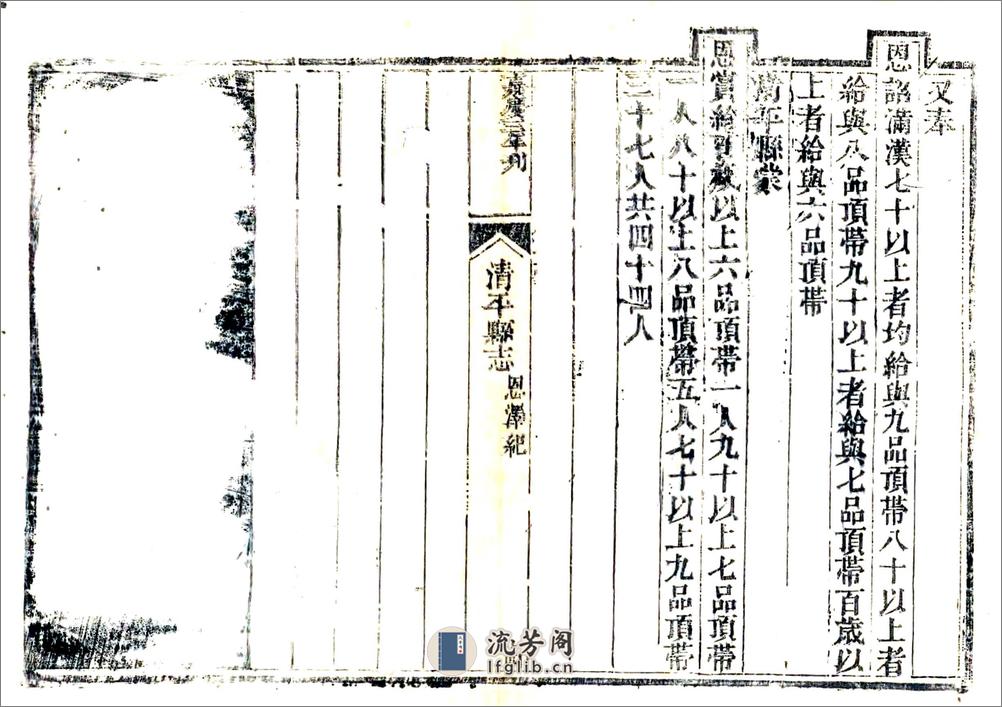 又奉
恩詔滿漢七十以上者均給與九品頂帶八十以上者
給與八品頂帶九十以上者給與七品頂帶百歲以
上者給與六品頂帶
清平縣蒙
恩賞給百歲以上六品頂帶一人九十以上七品頂帶
一人八十以上八品頂帶五人七十以上九品頂帶
三十七人共四十四人
嘉慶三年刊
清平縣志
恩澤紀
流芳阁
lfglib.cn